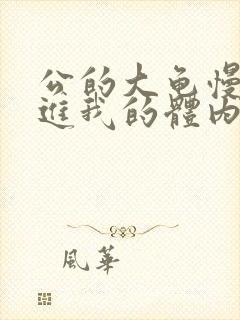 公的大龟慢
進我的體内
風華